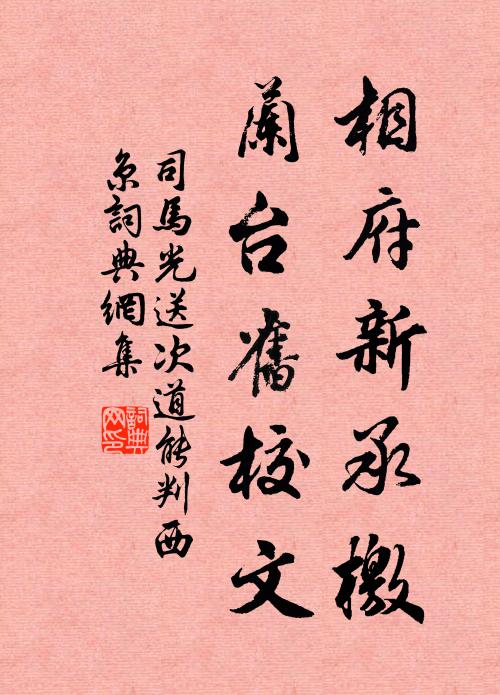 相府新承檄
蘭台舊校文
司馬光送次道能判西
京詞典網集
詞典
网印